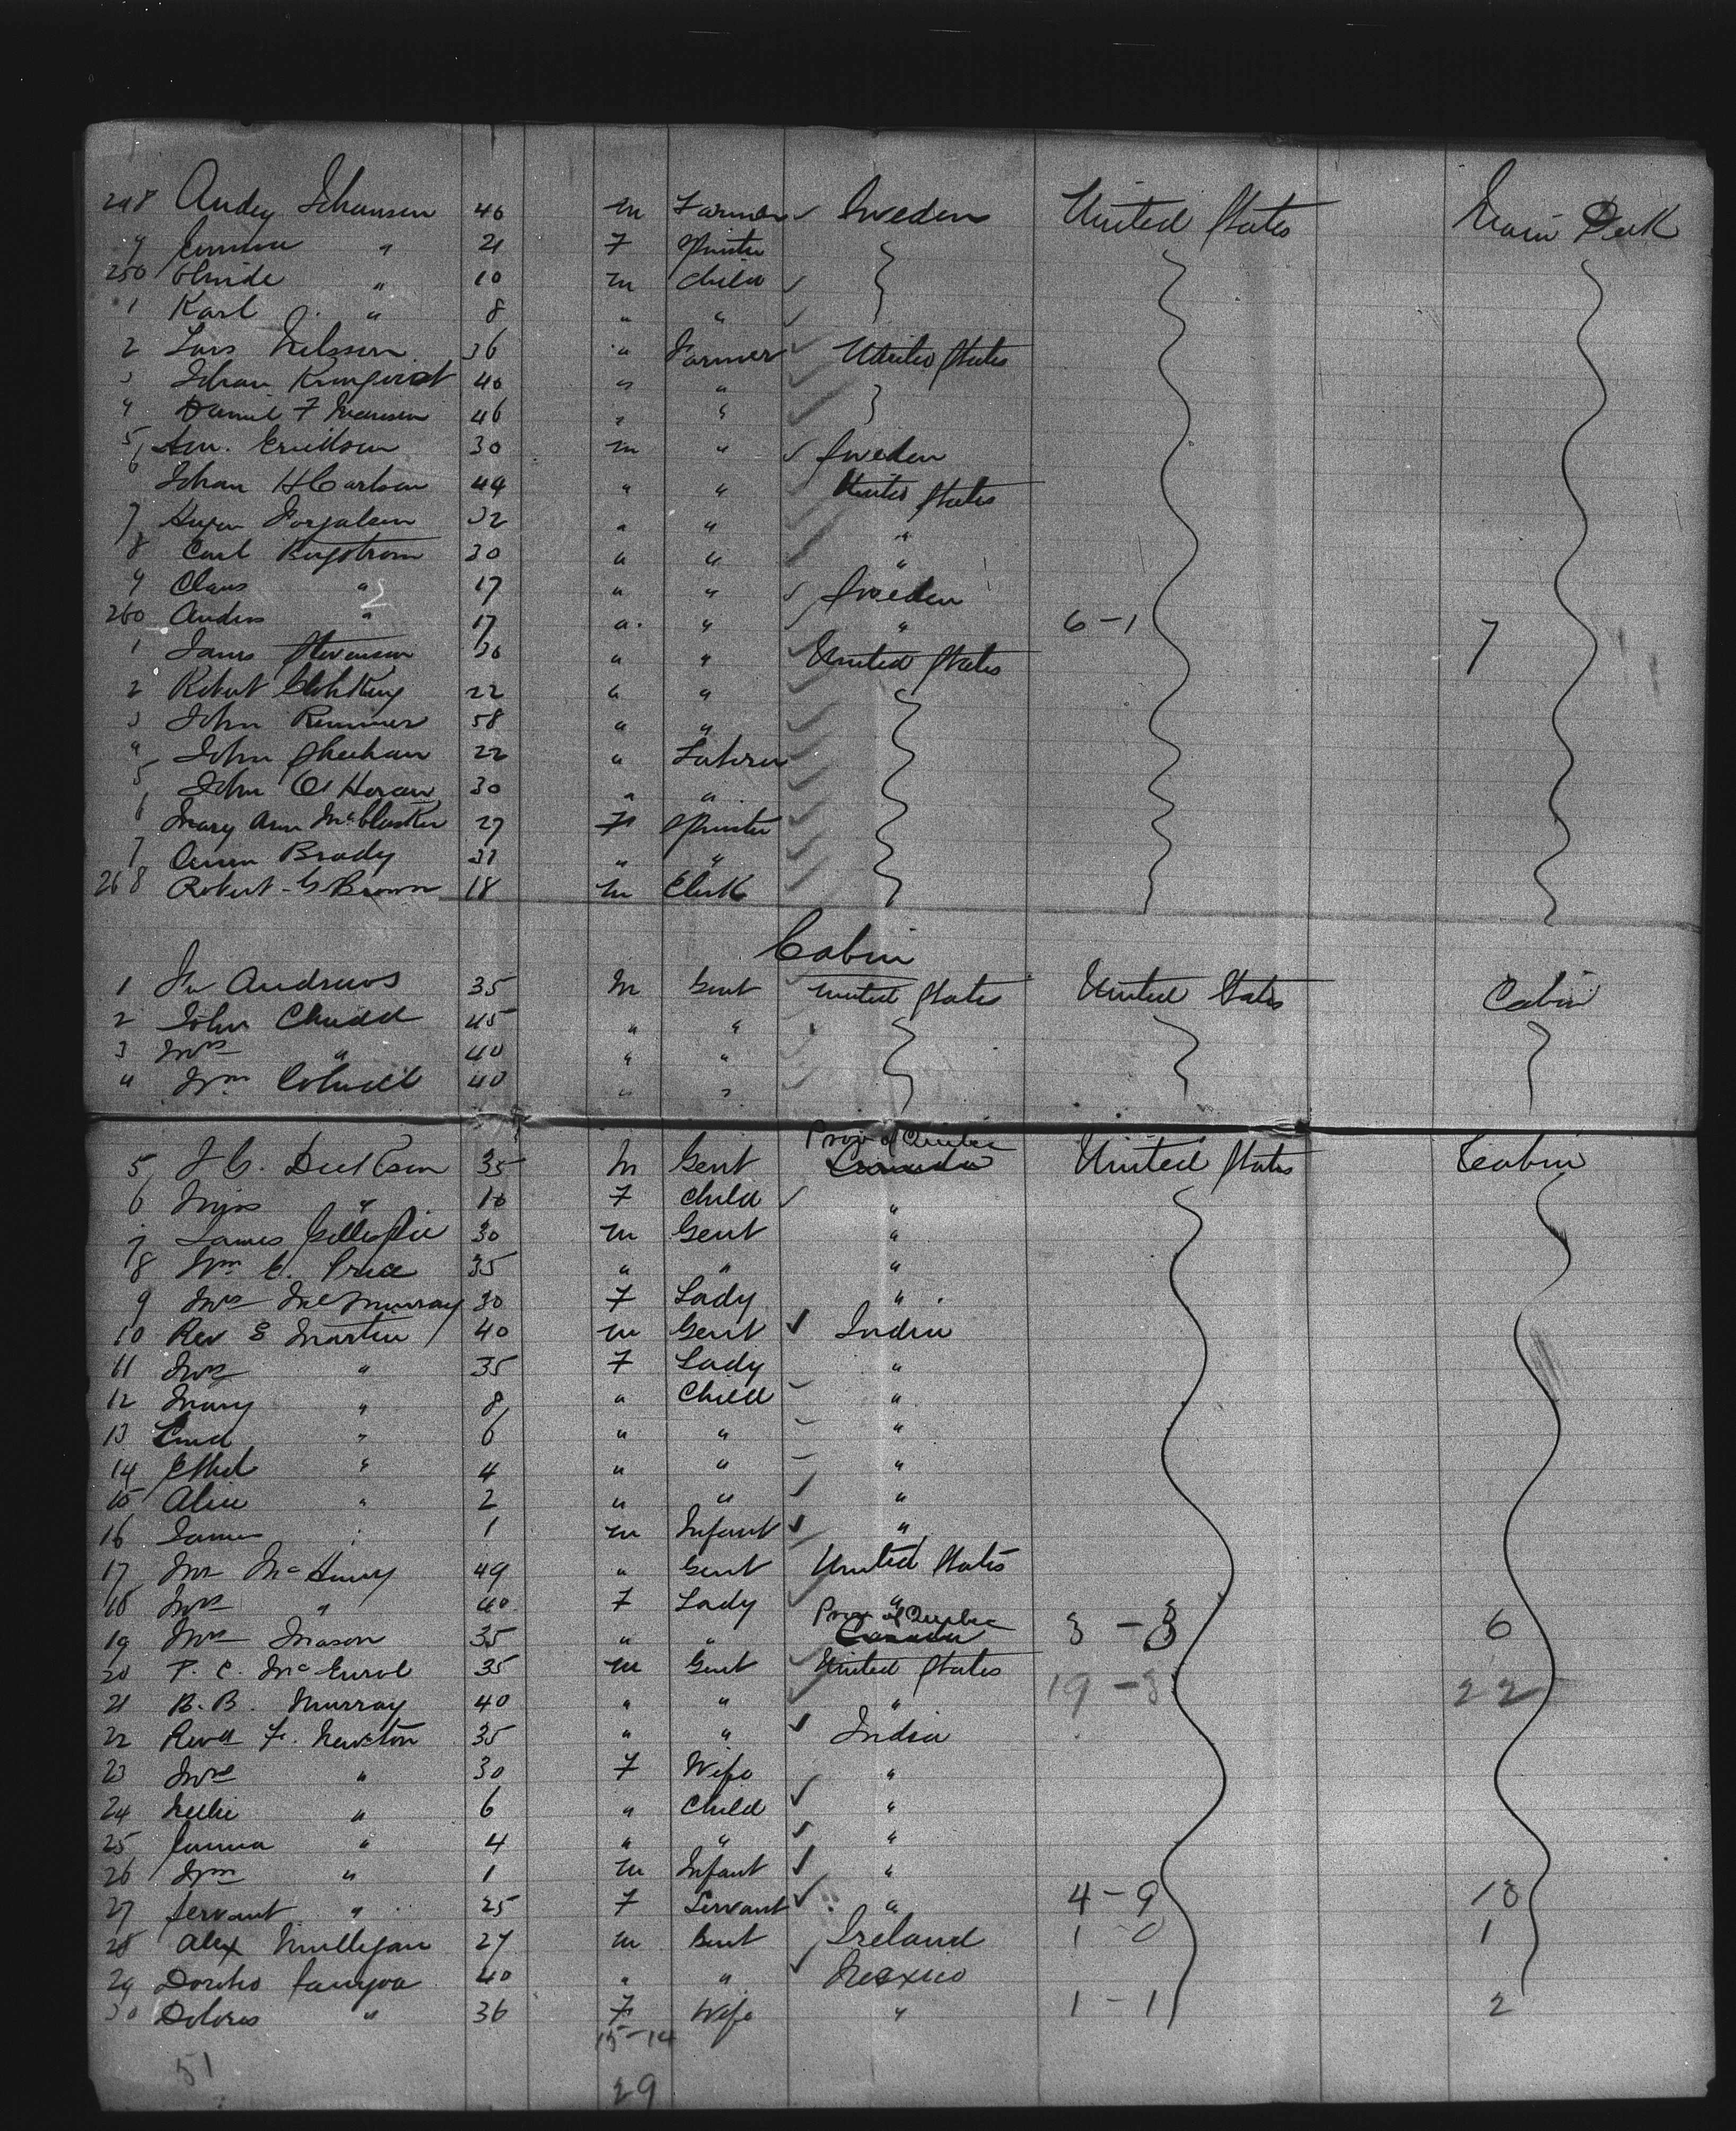 248 Johansen 46 m Farmer Sweden United States Main Deck
9 " 21 F
250 " 10 m Child
1 Karl " 8 " "
2 Lars Nilsson 36 " Farmer United States
3 Johan 40 " "
4 Daniel F 46 " "
5 30 m " Sweden
6 Johan H Carlson 44 " " United States
7 32 " " "
8 Carl 30 " " "
9 Claus " 17 " " Sweden
260 Anders " 17 " " " 6-1 7
1 James Stevenson 36 " " United States
2 Robert 22 " "
3 John Remmer 58 " "
4 John Sheehan 22 " Laborer
5 John O'Horan 30 " "
6 Mary Ann McCluskey 27 F
7 Brady 31 " "
268 Robert G Brown 18 m Clerk
Cabin
1 Andrews 35 M Gent United States United States Cabin
2 John 45 " "
3 Mrs " 40 " "
4 Wm 40 " "
Prov of Quebec
5 Dickson 35 M Gent Canada United States Cabin
6 Miss " 10 F Child "
7 James Gillespie 30 m Gent "
8 Wm C. Price 35 " " "
9 Mrs McMurray 30 F Lady "
10 Rev E Martin 40 m Gent India
11 Mrs " 35 F Lady "
12 Mary " 8 " Child "
13 " 6 " " "
14 Ethel " 4 " " "
15 Alice " 2 " " "
16 James " 1 m Infant "
17 Mr McHenry 49 " Gent United States
18 Mrs " 40 F Lady "
Prov of Quebec
19 Mrs Mason 35 " " Canada 3-3 6
20 35 m Gent United States
21 B. B. Murray 40 " " " 19-3 22
22 Revd F. Newton 35 " " India
23 Mrs " 30 F Wife "
24 Nellie " 6 " Child "
25 " 4 " " "
26 Wm " 1 m Infant "
27 Servant " 25 F Servant " 4-9 13
28 Alex Mulligan 27 m Gent Ireland 1-0 1
29 40 " " Mexico
30 Dolores " 36 F Wife " 1-1 2
15-14
51
29